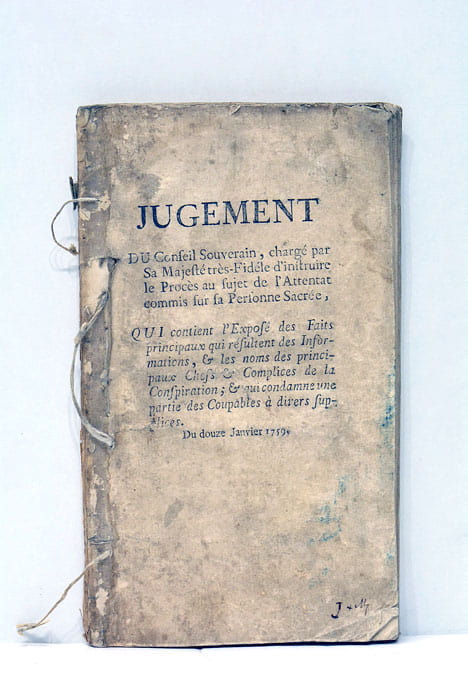 JUGEMENT
DU Conſeil Souverain, chargé par
Sa Majeſté très-Fidéle d'inſtruire
le Procès au ſujet de l'Attentat
commis ſur ſa Perſonne Sacrée,
QUI contient l'Expoſé des Faits
principaux qui réſultent des Infor-
mations, & les noms des princi-
paux Chefs & Complices de la
Conſpiration; & qui condamne une
partie des Coupables à divers ſup-
plices.
Du douze Janvier 1759.